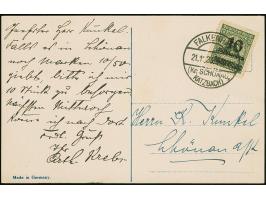 Geehrter Herr Kunkel.
Falls es in Schönau
noch Marken 10/50
giebt, bitte ich mir
10 Stück zu besorgen
nächsten Mittwoch
komme ich nach dort
Frdl. Gruß
Ihr
Made in Germany.
FALKENHAIN
21.1
(Kr. SCHÖNAU
KATZBACH)
10
Herrn R. Kunkel
Schönau a/K